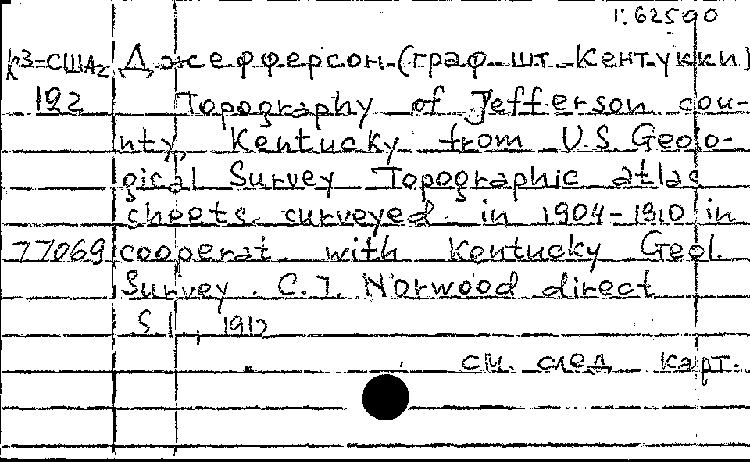 1:62500
К3-США2 Джефферсон (граф. шт. Кентукки)
192 Topography of Jefferson cou-
nty, Kentucky from U.S. Geolo-
gical Survey Topographic atlas
sheets surveyed in 1904-1910 in
77069 cooperat. with Kentucky Geol.
Survey. C.J. Norwood direct
S.l., 1912
см. след. карт.